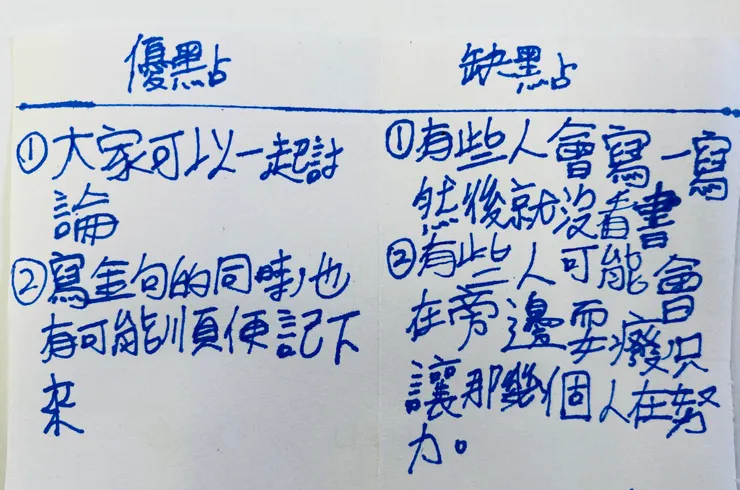 優點
①大家可以一起討
論
②寫金句的同時,也
有可能順便記下
來
缺點
①有些人會寫一寫
然後就沒看書
②有些人可能會
在旁邊耍廢只
讓那幾個人在努
力。